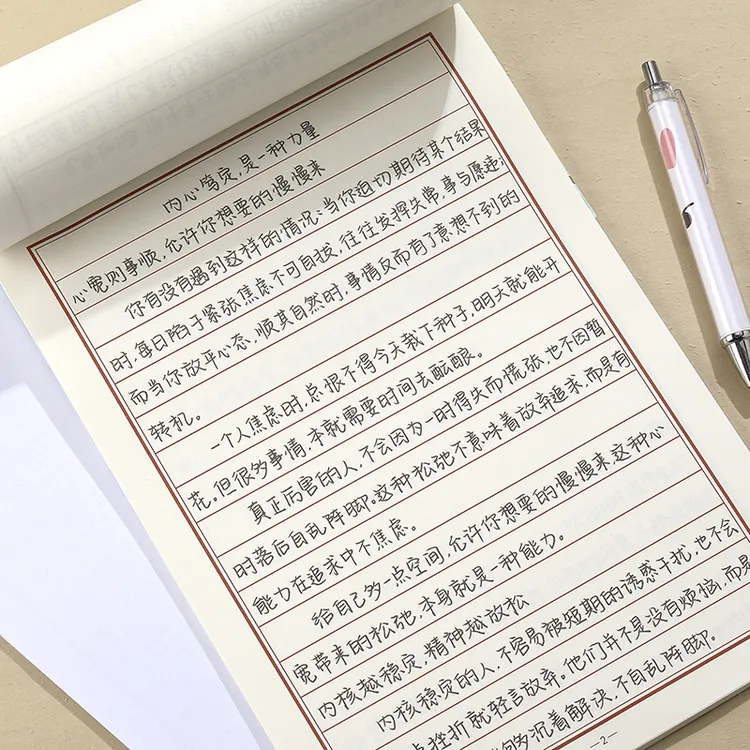 内心笃定,是一种力量
心宽则事顺,允许你想要的慢慢来
你有没有遇到这样的情况:当你迫切期待某个结果
时,每日陷于紧张焦虑不可自拔,往往发挥失常,事与愿违;
而当你放平心态,顺其自然时,事情反而有了意想不到的
转机。
一个人焦虑时,总恨不得今天栽下种子,明天就能开
花。但很多事情,本就需要时间去酝酿。
真正厉害的人,不会因为一时得失而慌张,也不因暂
时落后自乱阵脚。这种松弛不意味着放弃追求,而是有
能力在追求中不焦虑。
给自己多一点空间,允许你想要的慢慢来,这种心
宽带来的松弛,本身就是一种能力。
内核越稳定,精神越放松
内核稳定的人,不容易被短期的诱惑干扰,也不会
点挫折就轻言放弃。他们并不是没有烦恼,而是
够沉着解决,不自乱阵脚。
—2—